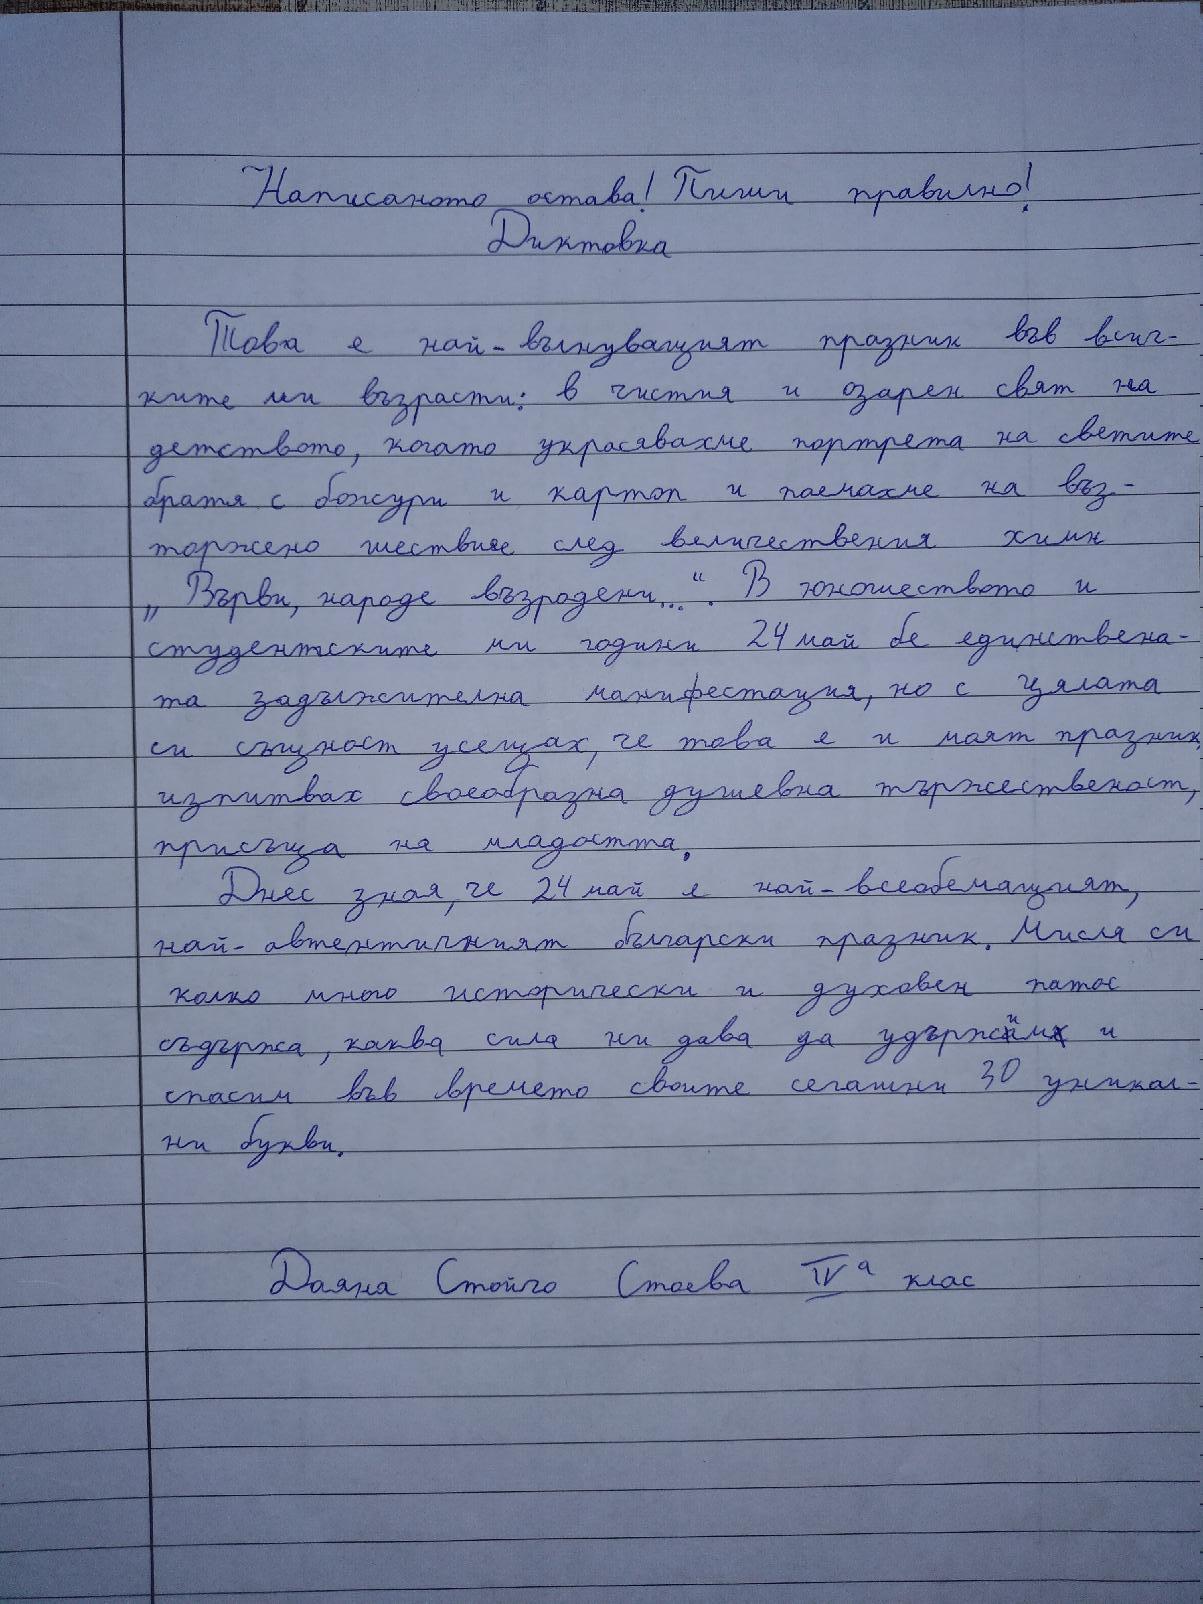 Написаното остава! Пиши правилно!
Диктовка
Това е най-вълнуващият празник във всич-
ките ми възрасти: в чистия и озарен свят на
детството, когато украсявахме портрета на светите
братя с божури и картоп и поемахме на въз-
торжено шествие след величествения химн
„Върви, народе възродени...“. В юношеството и
студентските ми години 24 май бе единствена-
та задължителна манифестация, но с цялата
си същност усещах, че това е и моят празник,
изпитвах своеобразна душевна тържественост,
присъща на младостта.
Днес зная, че 24 май е най-всеобемащият,
най-автентичният български празник. Мисля си
колко много исторически и духовен патос
съдържа, каква сила ни дава да удържим и
спасим във времето своите сегашни 30 уникал-
ни букви.
Даяна Стойчо Стоева IVа клас